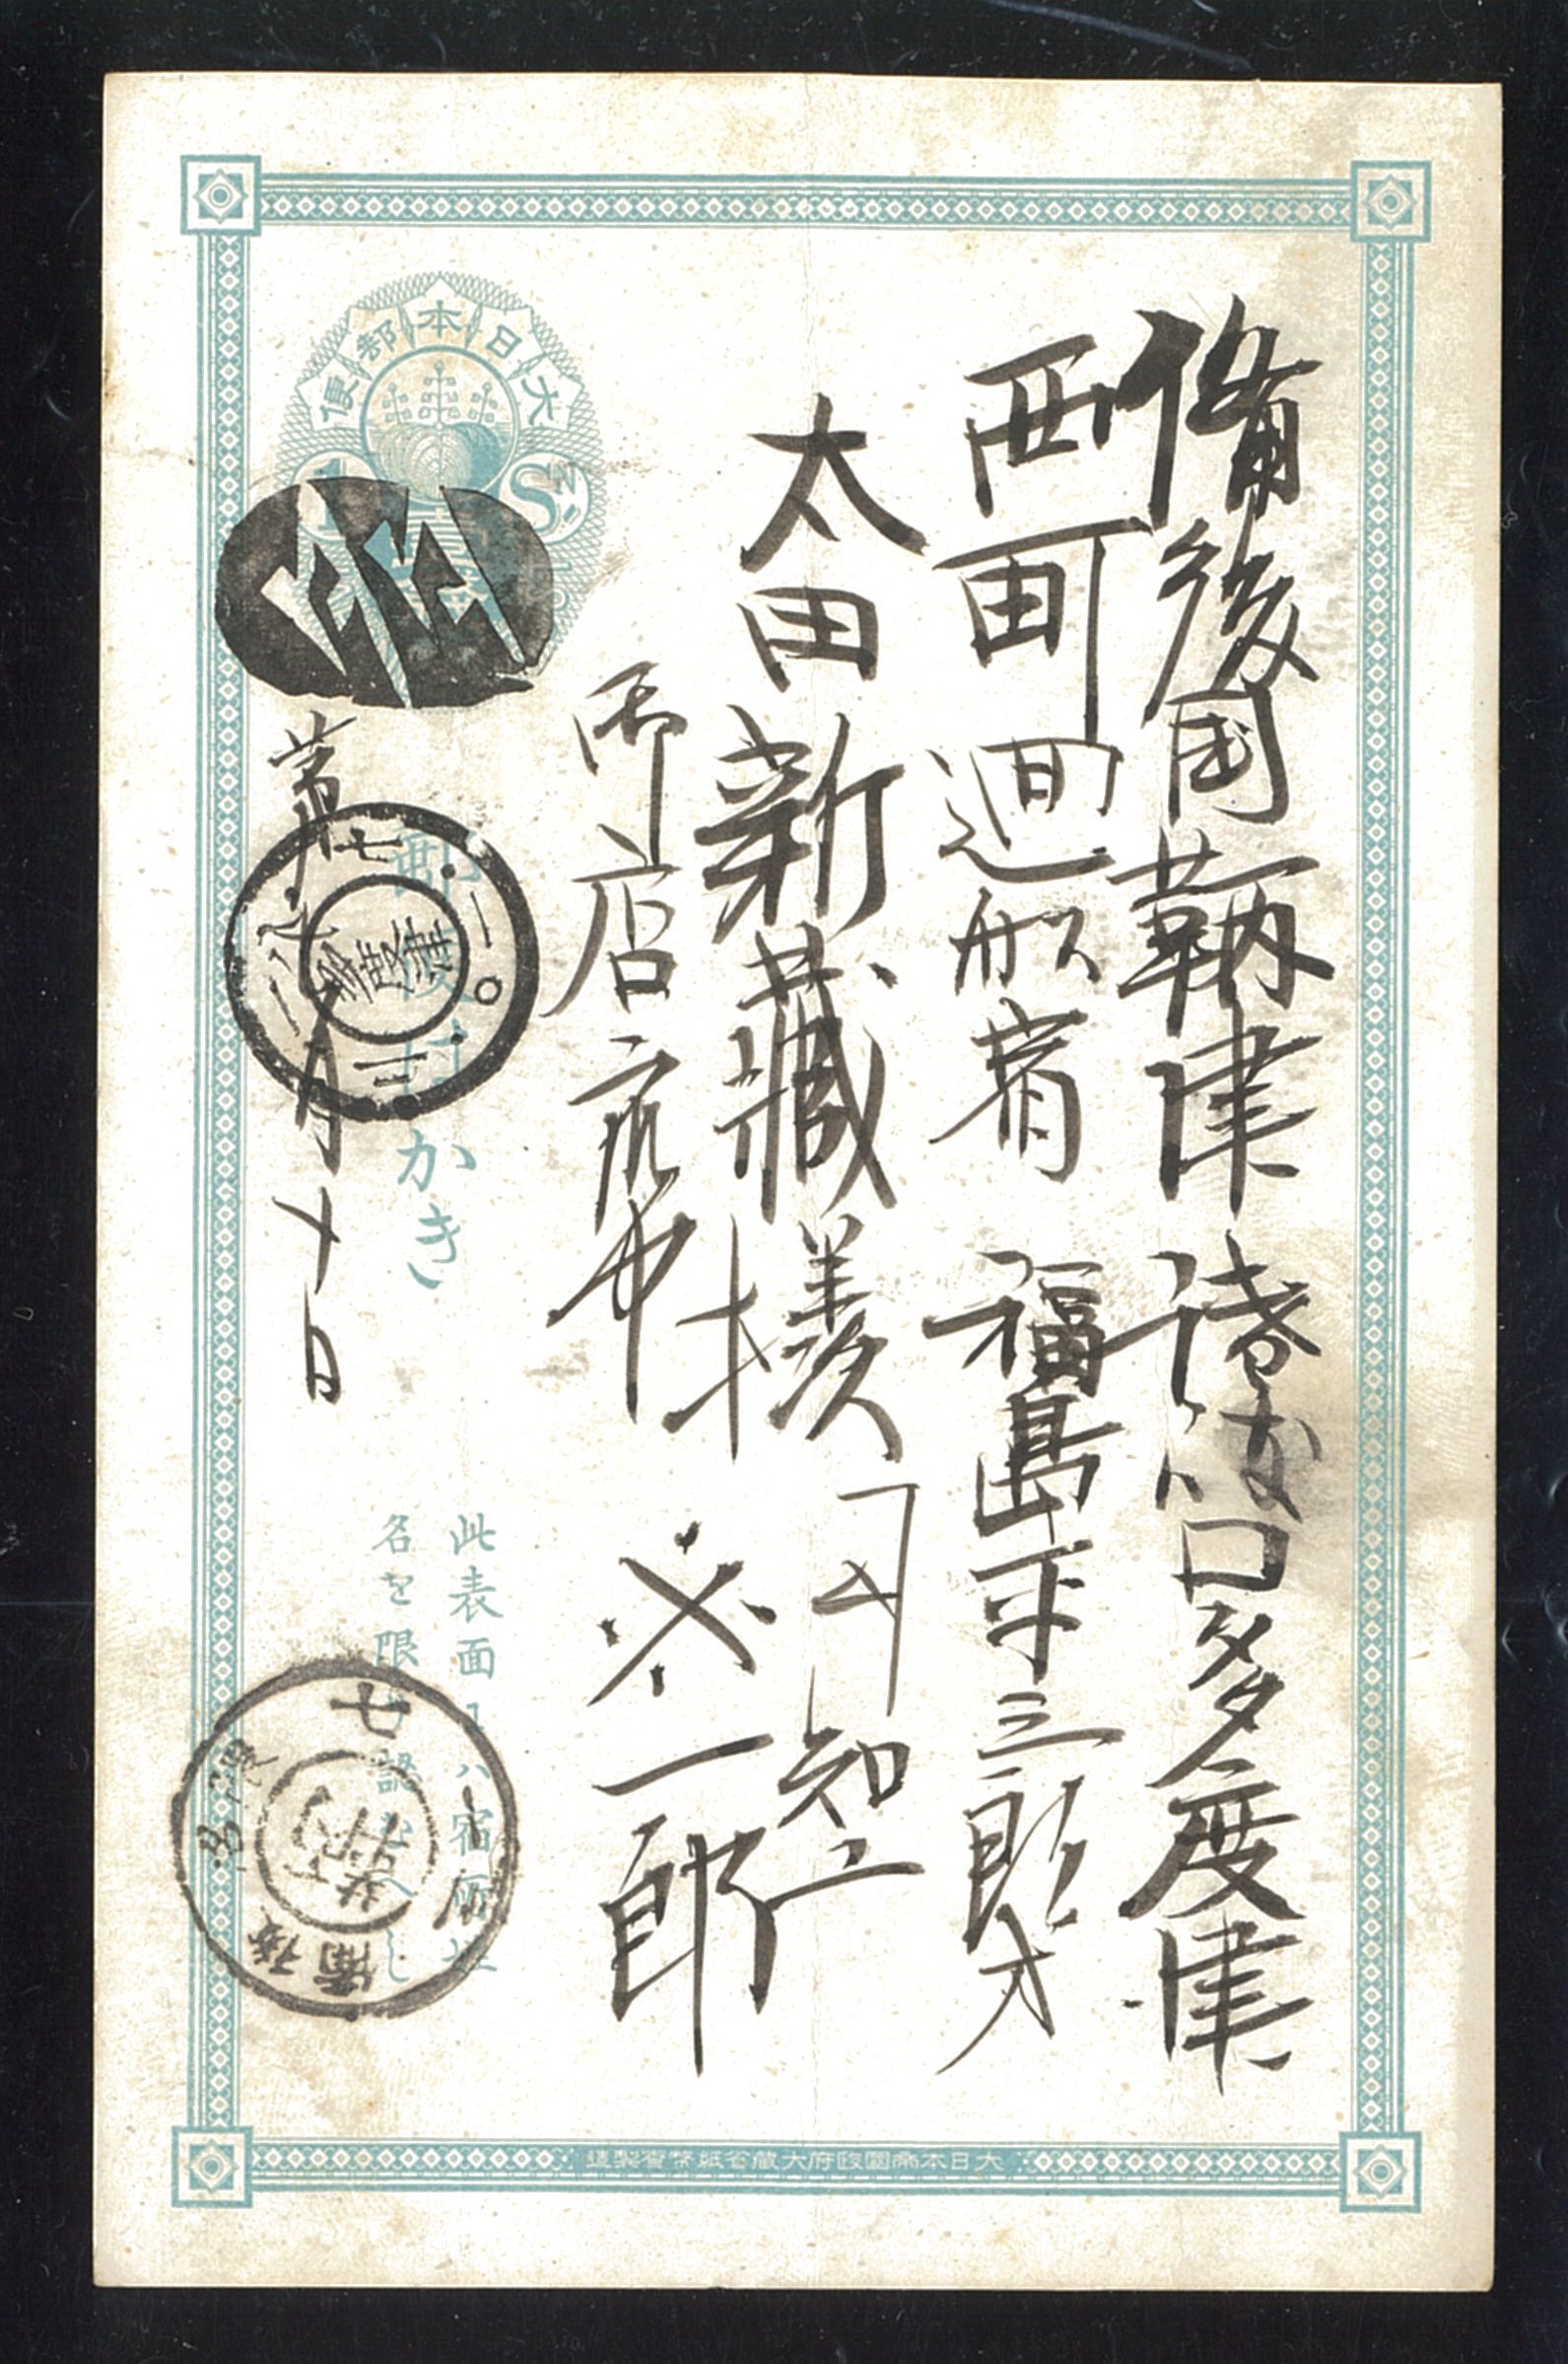 備後国鞆津
西町廻船宿
太田新蔵様
御店衆中
讃 口多度津
福島平三郎方
知
米一郎
第 月十日
大日本郵便
郵便はかき
此表面ニハ宿所姓
名を限り認むへし
大日本帝國政府大藏省紙幣寮製造
多度津
備後